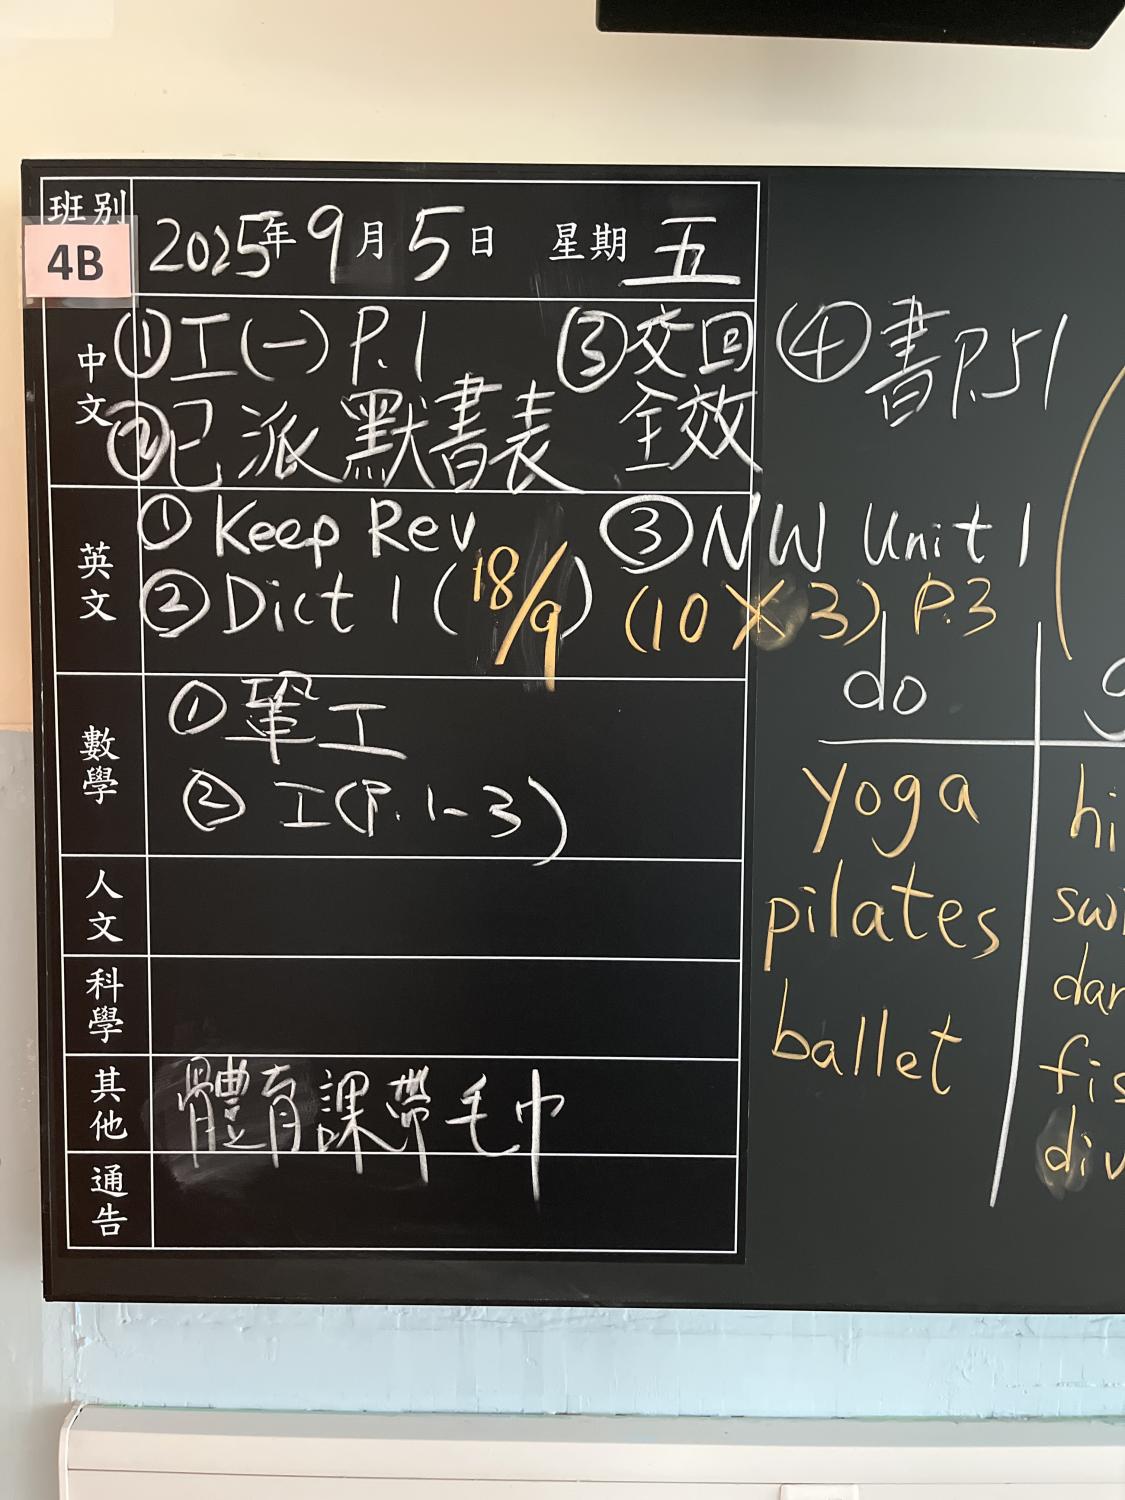 班別 4B 2025年9月5日 星期五
中文 ①工(一) P.1 ③交回 ④書P.51
②已派默書表 全效
英文 ① Keep Rev ③ NW Unit 1
② Dict 1 (18/9) (10 X 3) P.3
數學 ① 鞏工
② 工(P.1-3)
人文
科學
其他 體育課帶毛巾
通告
do
yoga
pilates
ballet